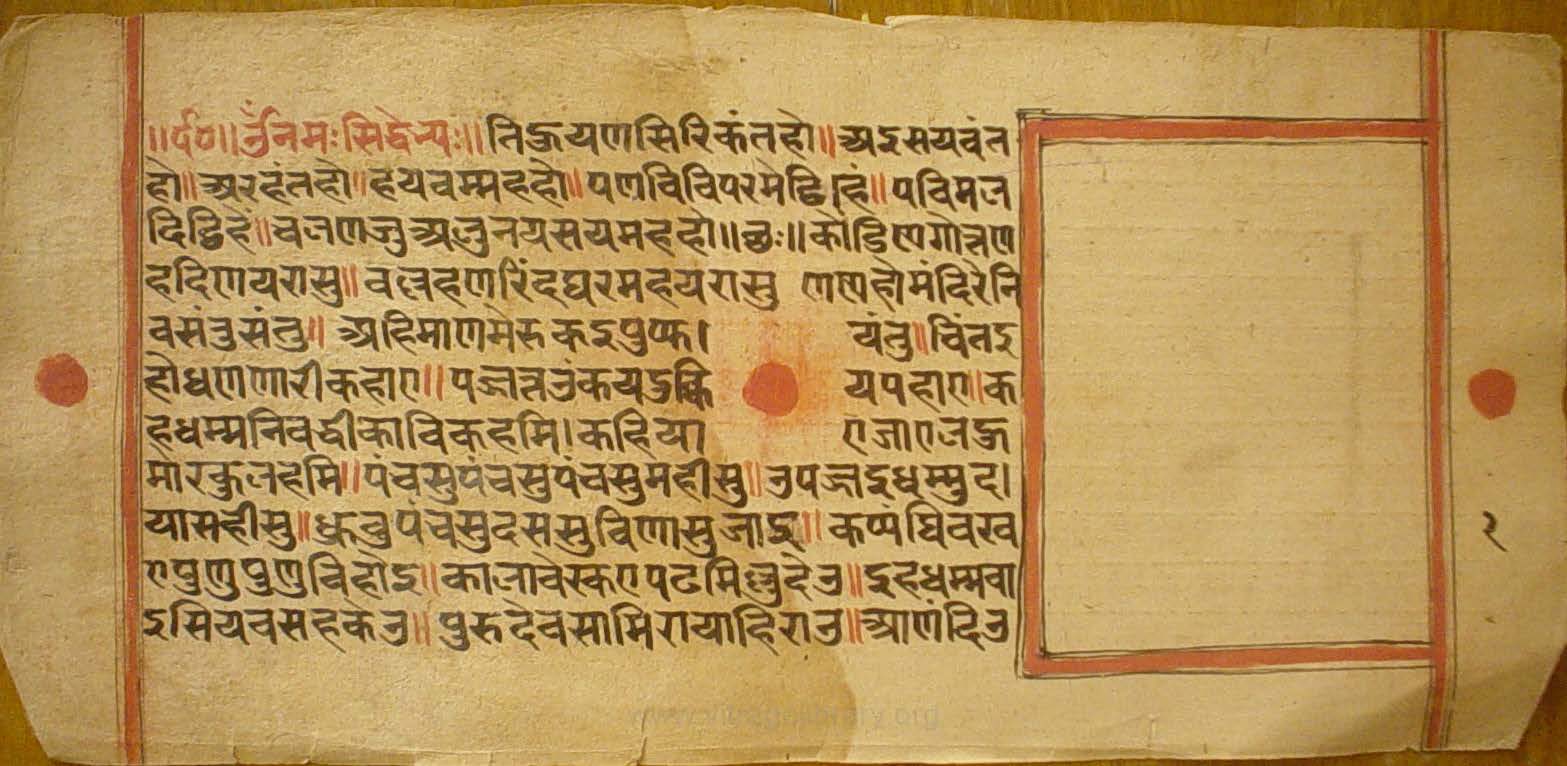 ॥र्द०॥ उँ नमः सिद्धेभ्यः॥ तिहुयणसिरिकंतहो॥ अइसयवंत
हो॥ अरहंतहो॥ हयवम्महहो॥ पणविवि परमेट्ठिहिं॥ पविमल
दिट्ठिहे॥ चलणजुअलु नयसयमहहो॥ ॥छः॥ कोंडिण्णगोत्तण
हदिणयरासु॥ वल्लहणरिंदघरमहयरासु णण्णहो मंदिरे नि
वसंतु संतु॥ अहिमाणमेरु कइ पुप्फ। यंतु॥ चिंतइ
हो धणणारीकहाए॥ पज्जत्तउ कयदुक्कि यपहाए॥ क
हधम्मनिवद्धी का वि कहमि। कहिया ए जाए लहु
मारकु लहमि॥ पंचसु पंचसु पंचसु महीसु॥ उपज्जइ धम्मु द।
यासहीसु॥ ध्रुउ पंचसु दससु विणासु जाइ॥ कप्पंघिवखव
ए पुणु पुणु वि होइ॥ कालावेरकए पढमिल्लु देउ॥ इह धम्मवा
इ सियवसहकेउ॥ पुरुदेवसामि रायाहिराउ॥ आणंदिउ
२
www.vitragvani.org